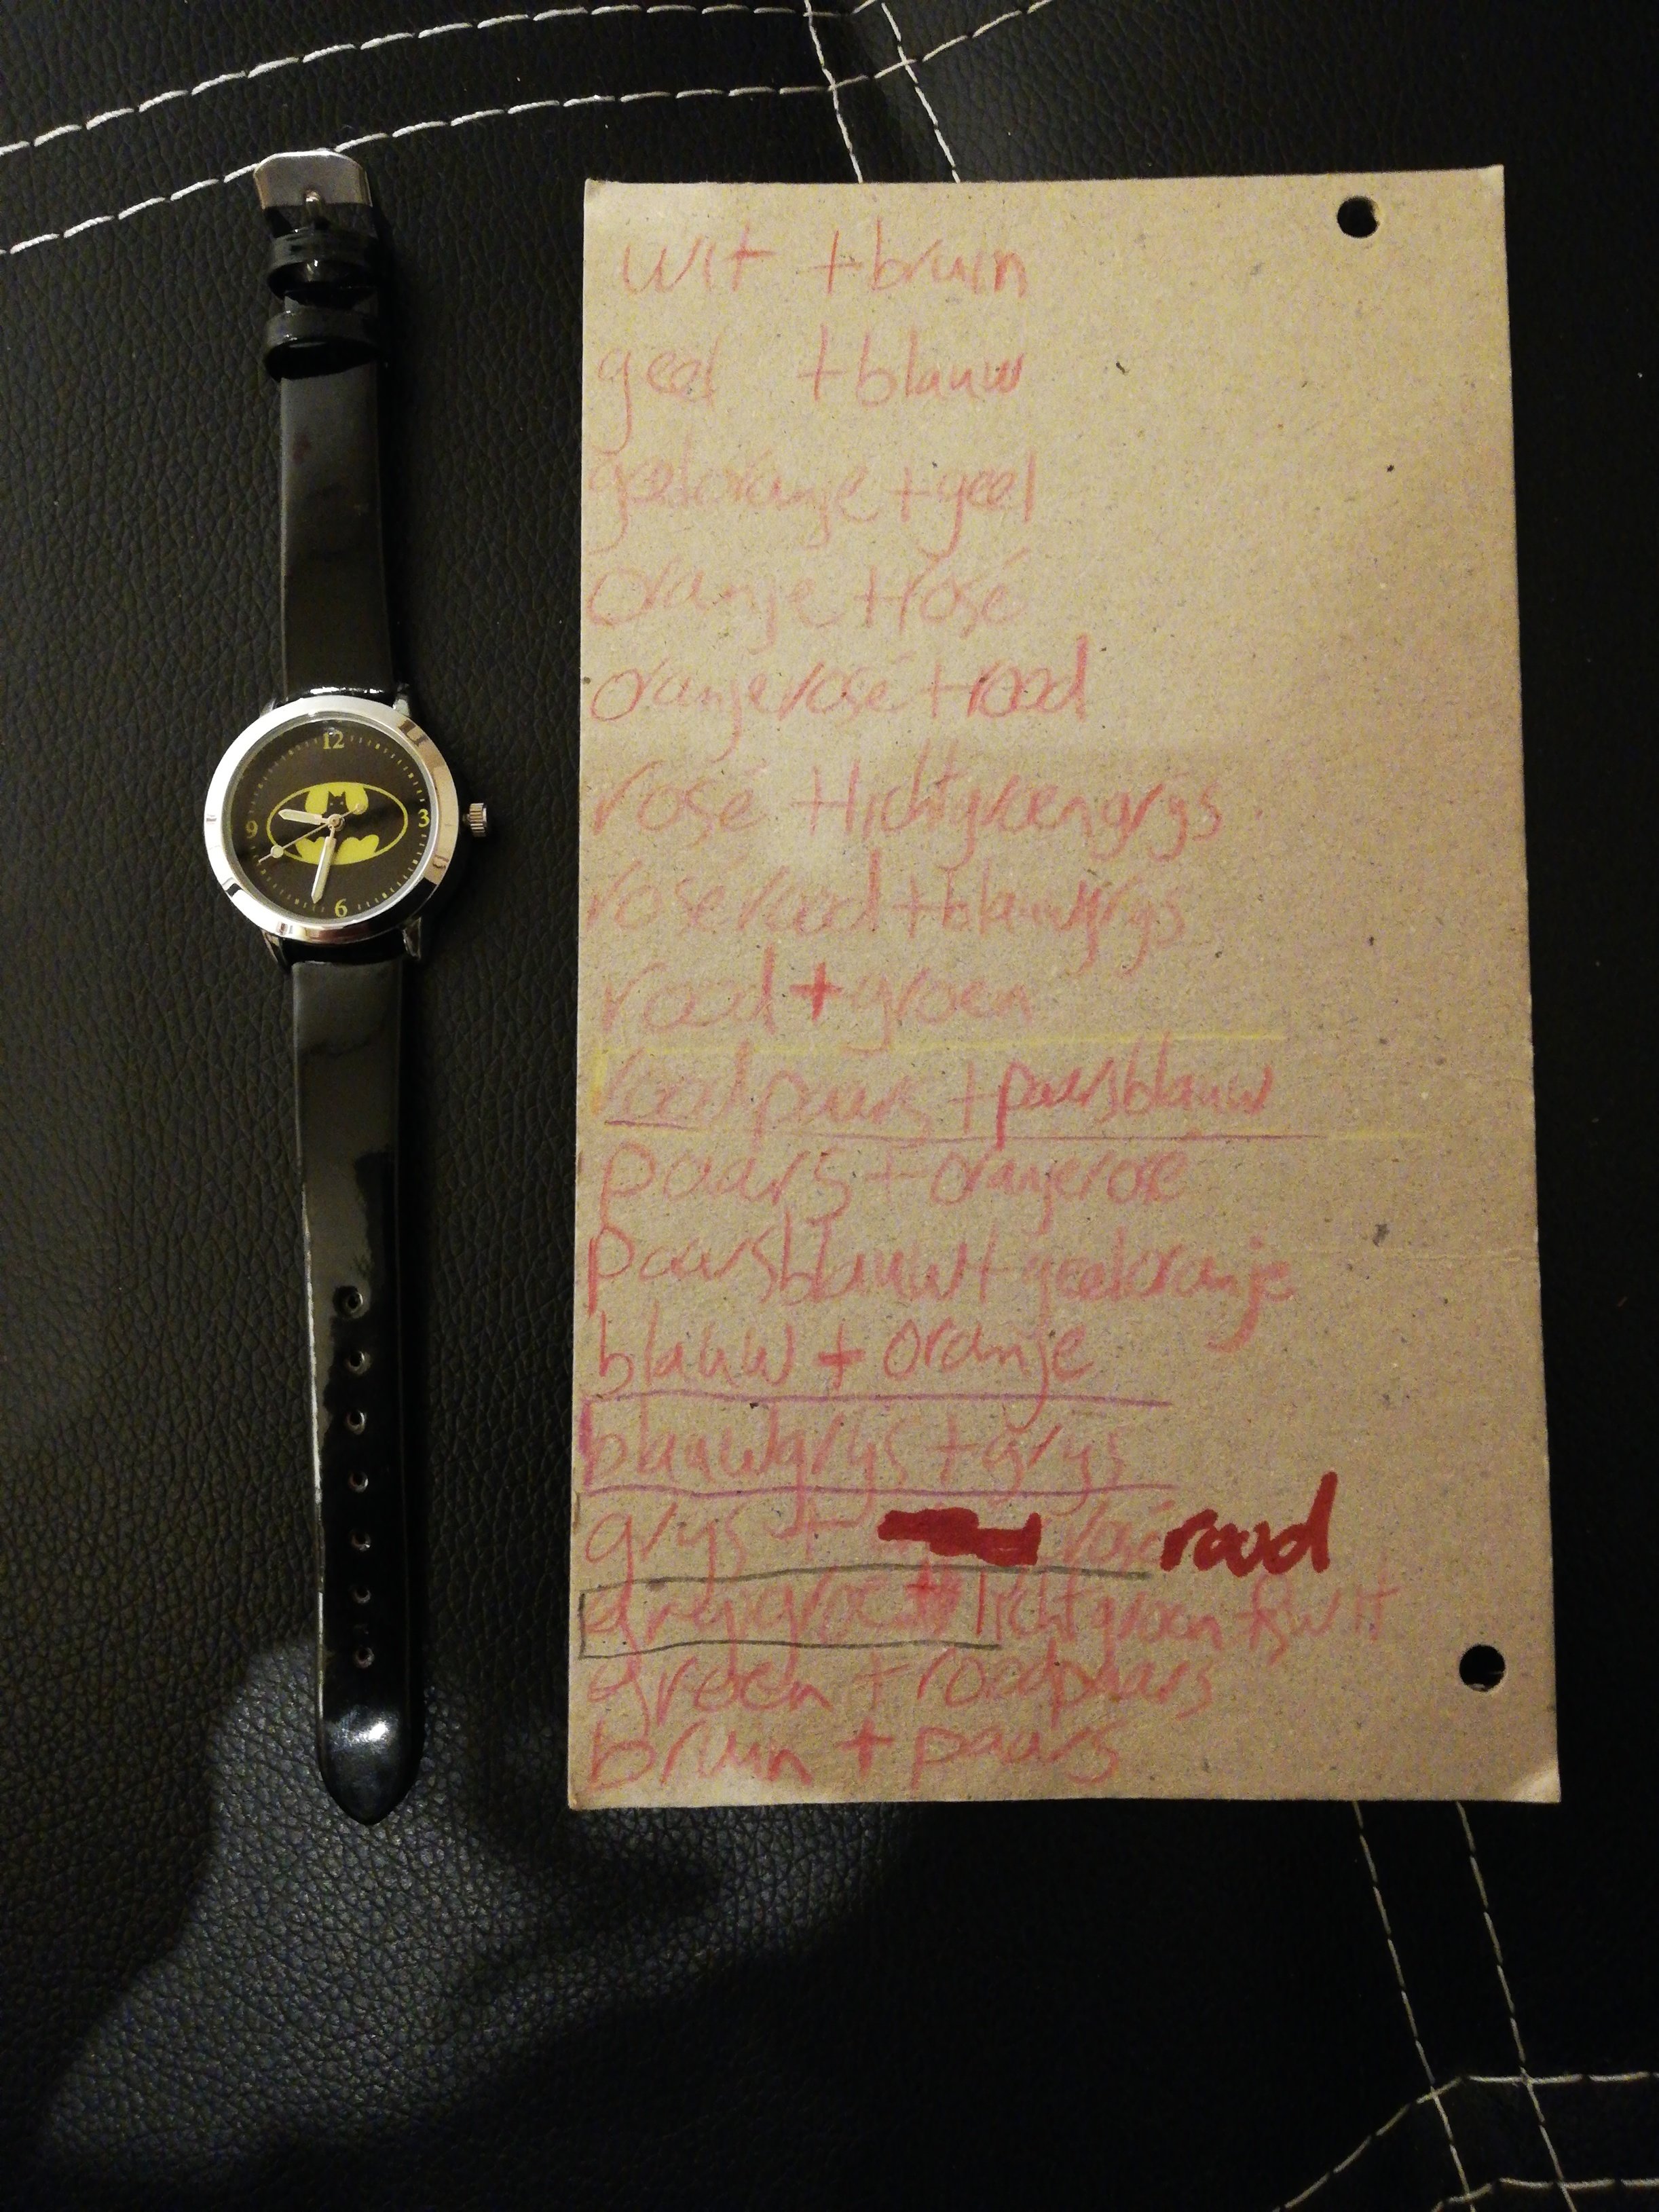 12
3
6
9
wit + bruin
geel + blauw
geeloranje + geel
oranje + rosé
oranjerosé + rood
rosé + lichtgroengrys
roserood + blauwgrys
rood + groen
roodpaars + paarsblauw
paars + oranjerosé
paarsblauw + geeloranje
blauw + oranje
blauwgrys + grys
grys + rosérood
lichtgroen wit
groen + roodpaars
bruin + paars